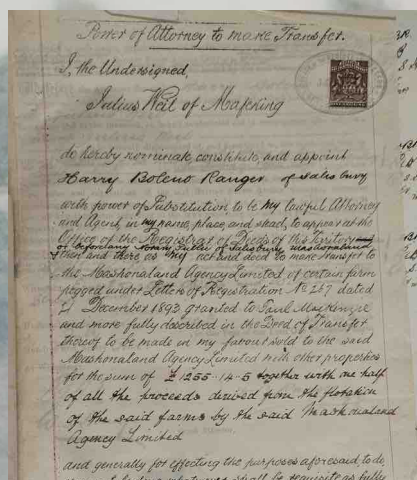 Power of Attorney to make Transfer.
I, the Undersigned,
Julius Weil of Mafeking
do hereby nominate, constitute, and appoint
Harry Boleno Ranger of Salisbury
with power of Substitution to be my lawful Attorney
and Agent, in my name, place, and stead, to appear at the
Office of the Registrar of Deeds of this Territory
or before any Notary Public of Salisbury Mashonaland
then and there as my act and deed to make transfer to
the Mashonaland Agency Limited of certain farm
pegged under Letter of Registration No 257 dated
December 1893 granted to Paul MacKenzie
and more fully described in the Deed of Transfer
thereof to be made in my favour sold to the said
Mashonaland Agency Limited with other properties
for the sum of £1255-14-5 together with one half
of all the proceeds derived from the flotation
of the said farms by the said Mashonaland
Agency Limited
and generally for effecting the purposes aforesaid, to do
shall be requisite as fully